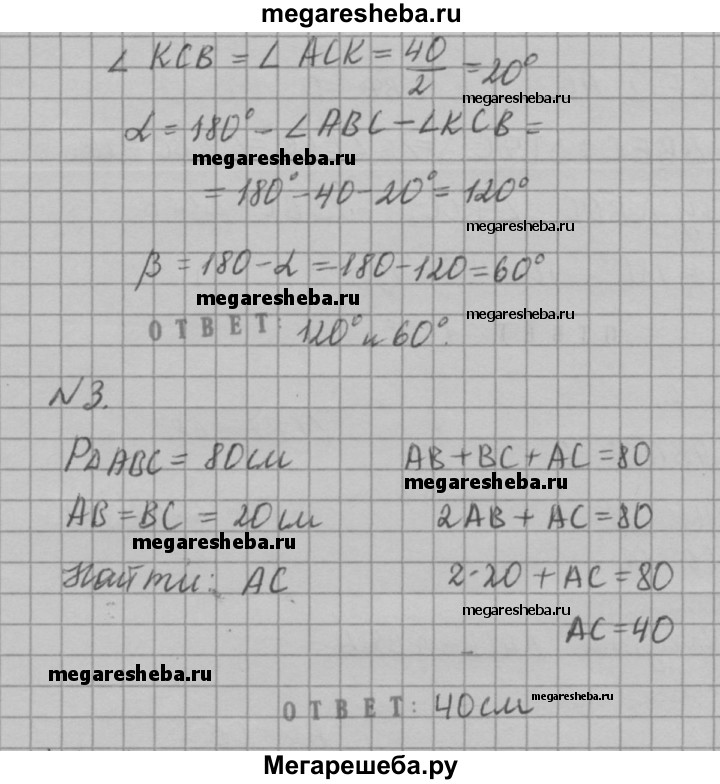 megaresheba.ru
∠ KCB = ∠ ACK = 40/2 = 20°
megaresheba.ru
α = 180° - ∠ABC - ∠KCB =
megaresheba.ru
= 180° - 40 - 20° = 120°
megaresheba.ru
β = 180 - α = 180 - 120 = 60°
megaresheba.ru
megaresheba.ru
ОТВЕТ: 120° и 60°.
N 3.
P∆ABC = 80 см
AB + BC + AC = 80
megaresheba.ru
AB = BC = 20 см
2AB + AC = 80
megaresheba.ru
Найти: AC
2·20 + AC = 80
megaresheba.ru
AC = 40
megaresheba.ru
ОТВЕТ: 40 см
megaresheba.ru
Мегарешеба.ру